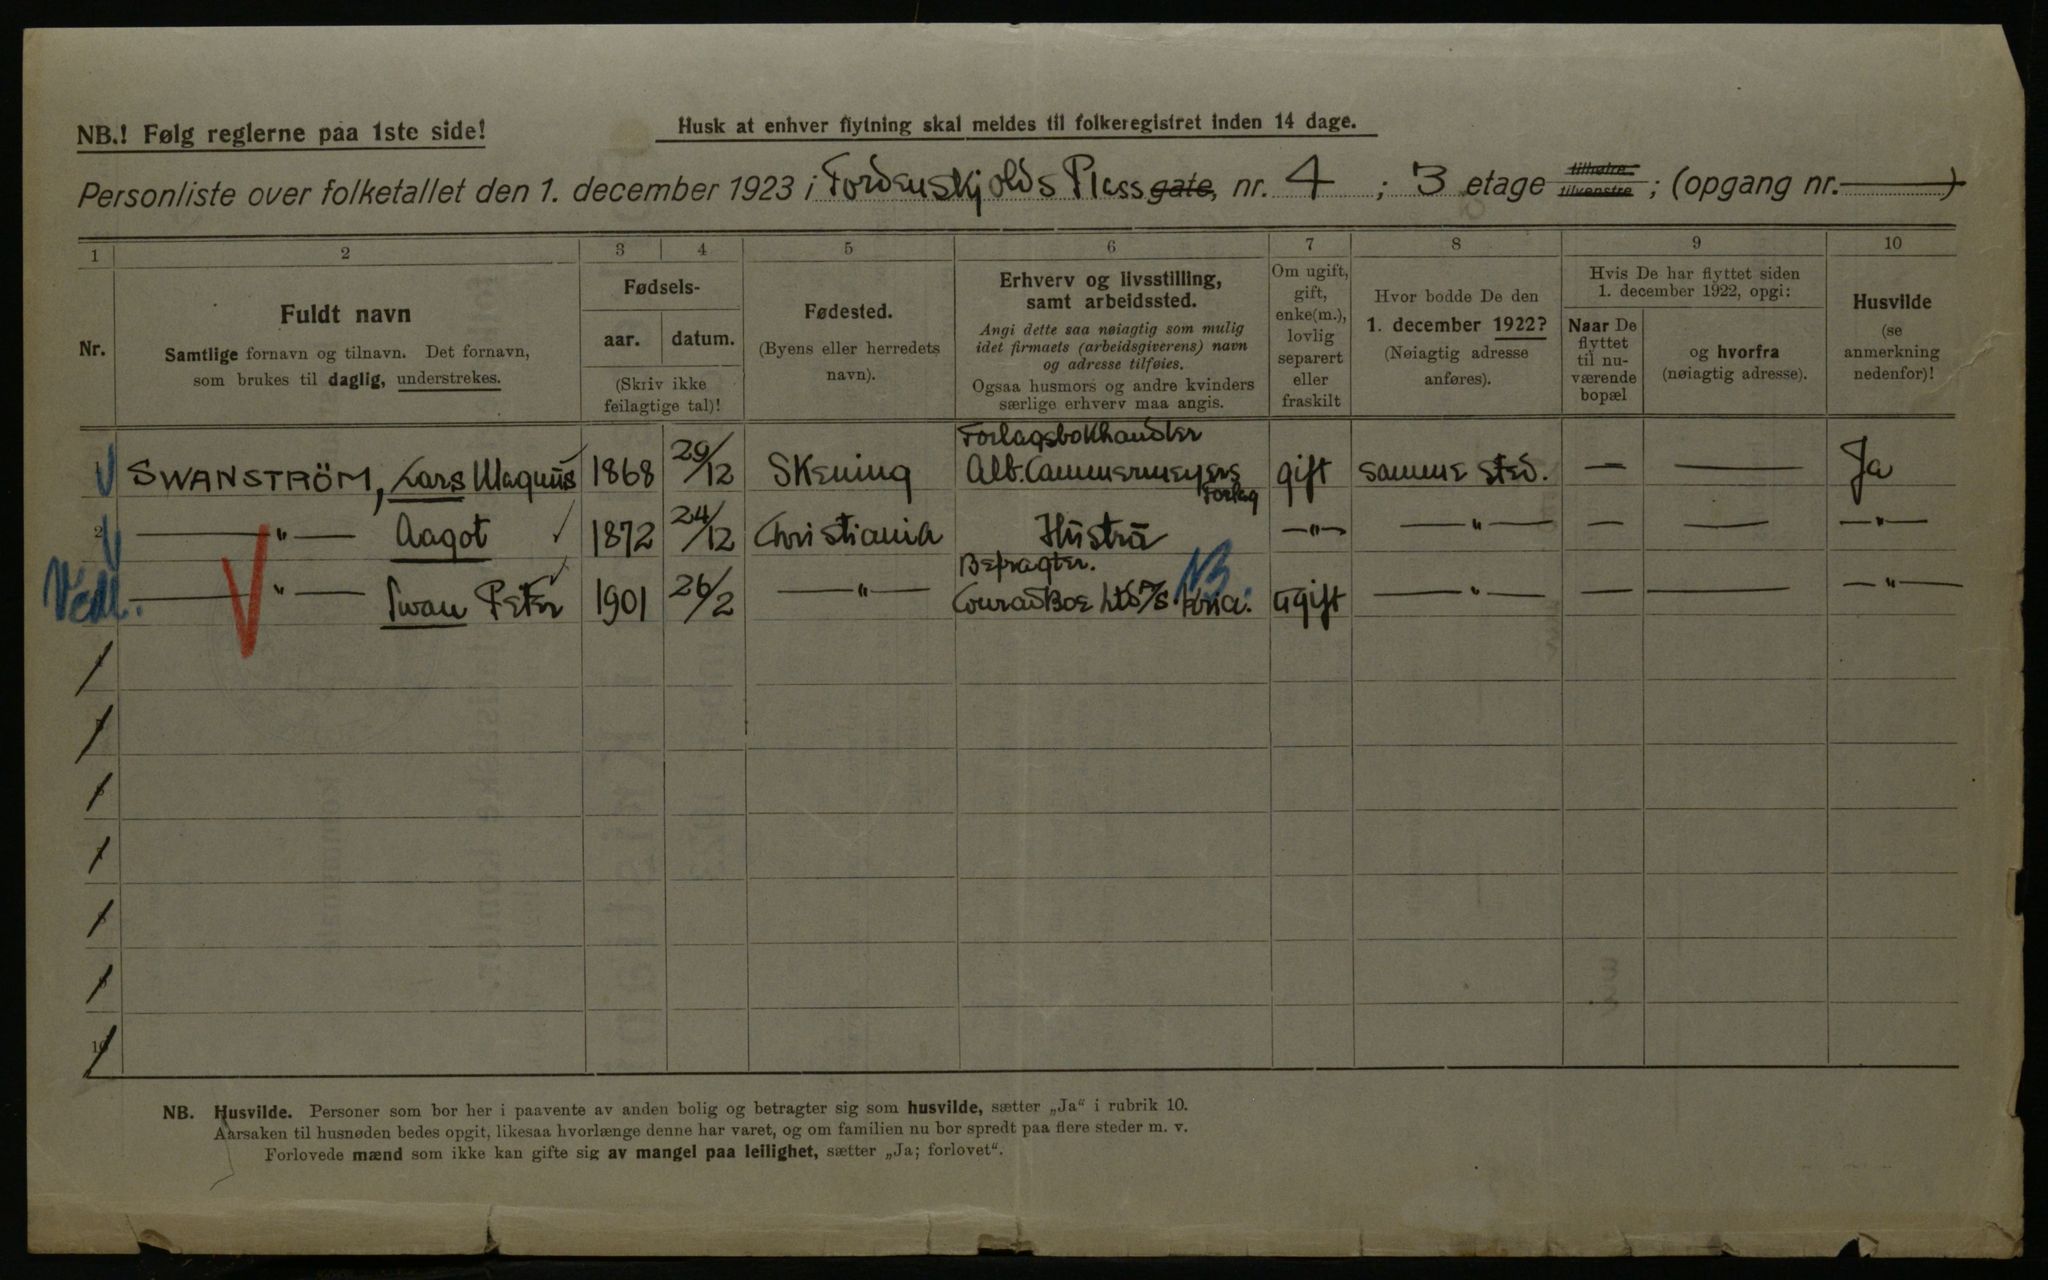 NB.! Følg reglerne paa 1ste side!
Husk at enhver flytning skal meldes til folkeregistret inden 14 dage.
Personliste over folketallet den 1. december 1923 i Tordenskjolds Plass gate, nr. 4 ; 3 etage tilhøire tilvenstre ; (opgang nr. — )
1 2 3 4 5 6 7 8 9 10
Nr.
Fuldt navn
Samtlige fornavn og tilnavn. Det fornavn,
som brukes til daglig, understrekes.
Fødsels-
aar. datum.
(Skriv ikke
feilagtige tal)!
Fødested.
(Byens eller herredets
navn).
Erhverv og livsstilling,
samt arbeidssted.
Angi dette saa nøiagtig som mulig
idet firmaets (arbeidsgiverens) navn
og adresse tilføies.
Ogsaa husmors og andre kvinders
særlige erhverv maa angis.
Om ugift,
gift,
enke(m.),
lovlig
separert
eller
fraskilt
Hvor bodde De den
1. december 1922?
(Nøiagtig adresse
anføres).
Hvis De har flyttet siden
1. december 1922, opgi:
Naar De
flyttet
til nu-
værende
bopæl
og hvorfra
(nøiagtig adresse).
Husvilde
(se
anmerkning
nedenfor)!
SWANSTRÖM, Lars Magnus 1868 29/12 Skening Forlagsbokhandler Alb. Cammermeyers Forlag gift samme sted. — — Ja
2 — " — Aagot 1872 24/12 Christiania Hustru — " — — " — — — — " —
Vedl. — " — Swan Peter 1901 26/2 — " — Befragter. Conrad Boe Ltd A/S Kria. NB ugift — " — — — — " —
10
NB. Husvilde. Personer som bor her i paavente av anden bolig og betragter sig som husvilde, sætter „Ja“ i rubrik 10.
Aarsaken til husnøden bedes opgit, likesaa hvorlænge denne har varet, og om familien nu bor spredt paa flere steder m. v.
Forlovede mænd som ikke kan gifte sig av mangel paa leilighet, sætter „Ja; forlovet“.